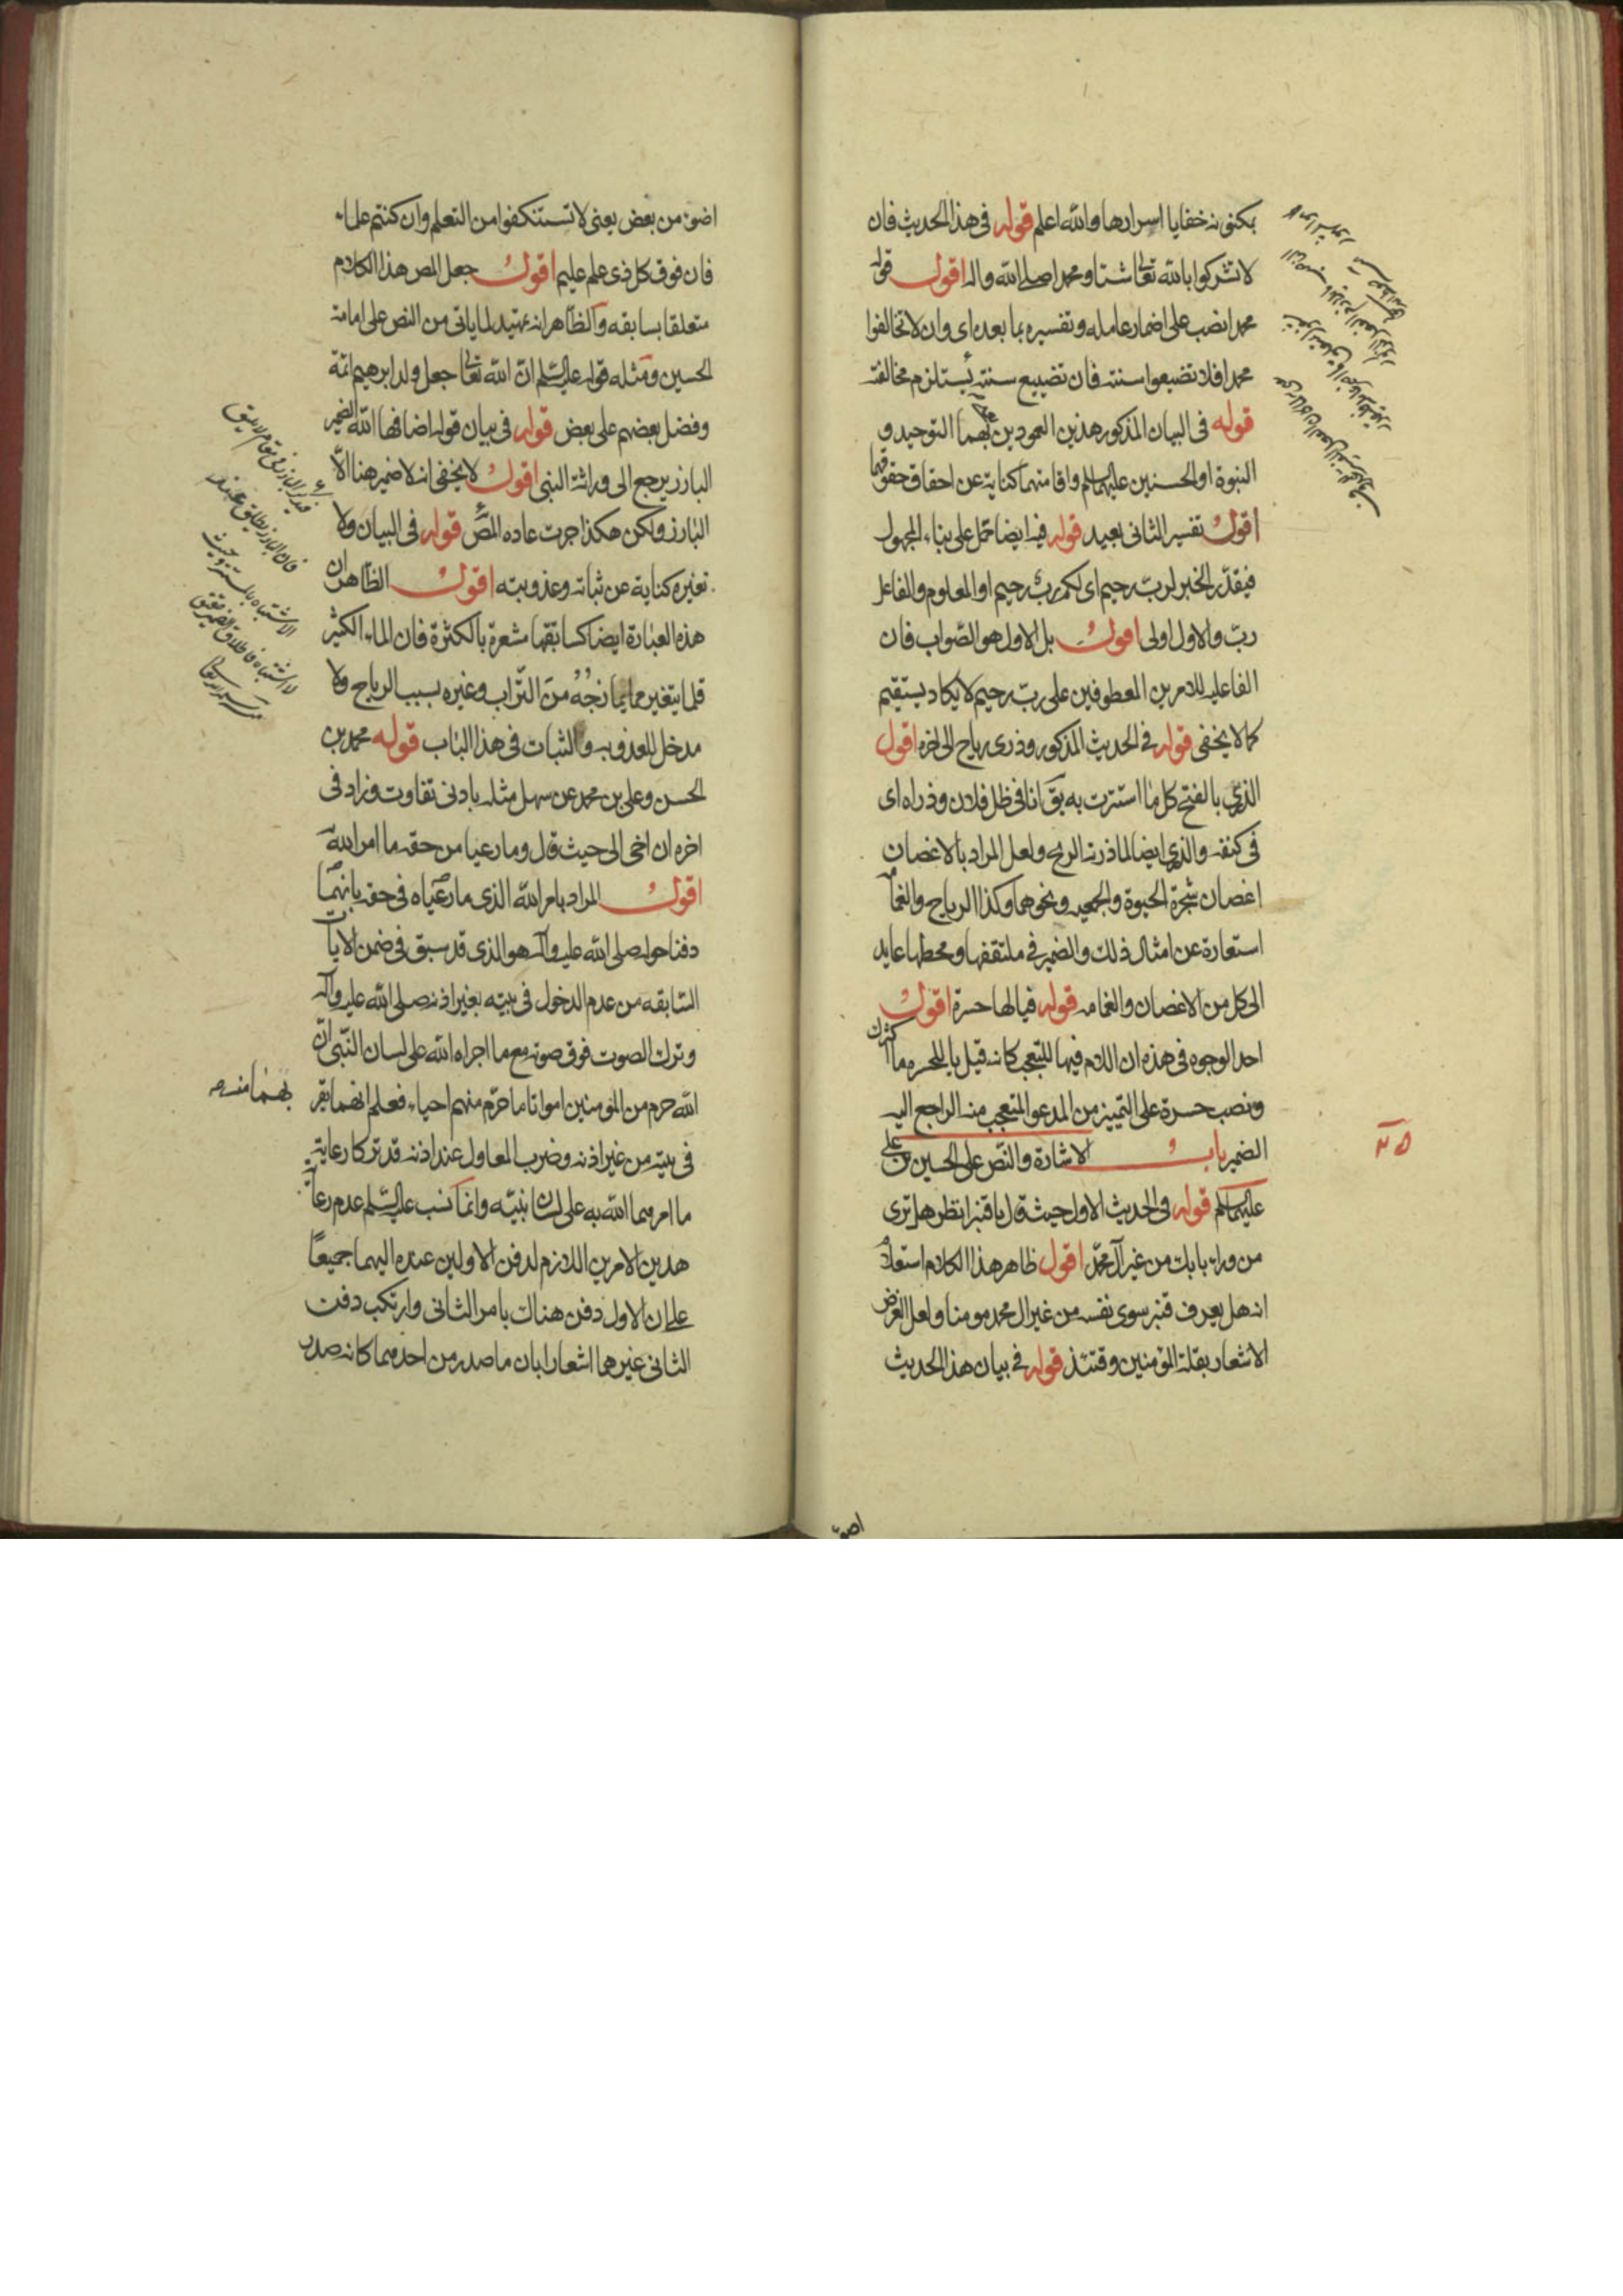 بمكنونه خفايا اسرارها والله اعلم قوله فى هذا الحديث فان
لا تشركوا بالله تعالى شيئا ومحمدا صلى الله واله اقول قوله
محمدا نصب على اضمار عامله وتفسيره بما بعده اى وان لا تخالفوا
محمدا فلا تضيعوا سنته فان تضييع سنته يستلزم مخالفته
قوله فى البيان المذكور هذين العمودين بهما التوحيد و
النبوة او الحسنين عليهما السلم واقامتهما كناية عن احقاق حقوقهما
اقول تفسير الثانى بعيد قوله فيه ايضا حمل على بناء المجهول
فيقدر الخبر لرب رحيم اى لكم رب رحيم او المعلوم والفاعل
رب والاول اولى اقول بل الاول هو الصواب فان
الفاعليه للامرين المعطوفين على رب رحيم لا يكاد يستقيم
كما لا يخفى قوله فى الحديث المذكور وذرى رياح الى اخره اقول
الذرى بالفتح كل ما استترت به يق انا فى ظل فلان وذراه اى
فى كنفه والذرى ايضا لما ذرته الريح ولعل المراد بالاغصان
اغصان شجرة الحيوة والجمعيه ونحوهما وكذا الرياح والغما
استعارة عن امثال ذلك والضمير فى ملتقفها ومحطها عايد
الى كل من الاغصان والغمامه قوله فيالها حسرة اقول
احد الوجوه فى هذه ان اللام فيها للتعجب كانه قيل يا للحسره ما اكثرك
ونصب حسرة على التمييز من المدعو المتعجب منه الراجع اليه
الضمير باب الاشارة والنص على الحسين بن على
عليهما السلم قوله فى الحديث الاول حيث قال يا قنبر انظر هل ترى
من وراء بابك من غير آل محمد اقول ظاهر هذا الكلام استعلام
انه هل يعرف قنبر سوى نفسه من غير ال محمد مومنا ولعل الغرض
الاشعار بقلة المؤمنين وقتئذ قوله فى بيان هذا الحديث
اضوء من بعض يعنى لا تستنكفوا من التعلم وان كنتم علماء
فان فوق كل ذى علم عليم اقول جعل المص هذا الكلام
متعلقا بسابقه والظاهر انه تمهيد لما ياتى من النص على امامة
الحسين ومثله قوله عليه السلم ان الله تعالى جعل ولد ابرهيم ائمة
وفضل بعضهم على بعض قوله فى بيان قوله اضافها الله الضمير
البارز يرجع الى وراثة النبى اقول لا يخفى انه لا ضمير هنا الا
البارز ولكن هكذا جرت عاده المص قوله فى البيان ولا
تغيره كناية عن ثباته وعذوبته اقول الظاهر ان
هذه العبارة ايضا كسابقها مشعرة بالكثرة فان الماء الكثير
قلما يتغير من التراب وغيره بسبب الرياح ولا
مدخل للعذوبه والثبات فى هذا الباب قوله محمد بن
الحسن وعلى بن محمد عن سهل مثله بادنى تفاوت وزاد فى
اخره ان اخى الى حيث قال وما رعيا من حقه ما امر الله
اقول المراد بامر الله الذى ما رعياه فى حقه بانهما
دفنا حوله صلى الله عليه وآله هو الذى قد سبق فى ضمن الايات
السابقه من عدم الدخول فى بيته بغير اذنه صلى الله عليه وآله
وترك الصوت فوق صوته مع ما اجراه الله على لسان النبى ان
الله حرم من المؤمنين امواتا ما حرم منهم احياء فعلم انهما بقر
بهما منه صـ
فى بيته من غير اذنه وضرب المعاول عند اذنه قد تركا رعاية
ما امرهما الله به على لسان نبيه وانما نسب عليه السلم عدم رعاية
هذين الامرين اللازم لدفن الاولين عنده اليهما جميعا
على ان الاول دفن هناك بامر الثانى وارتكب دفن
الثانى غيرهما اشعارا بان ما صدر من احدهما كانه صدر